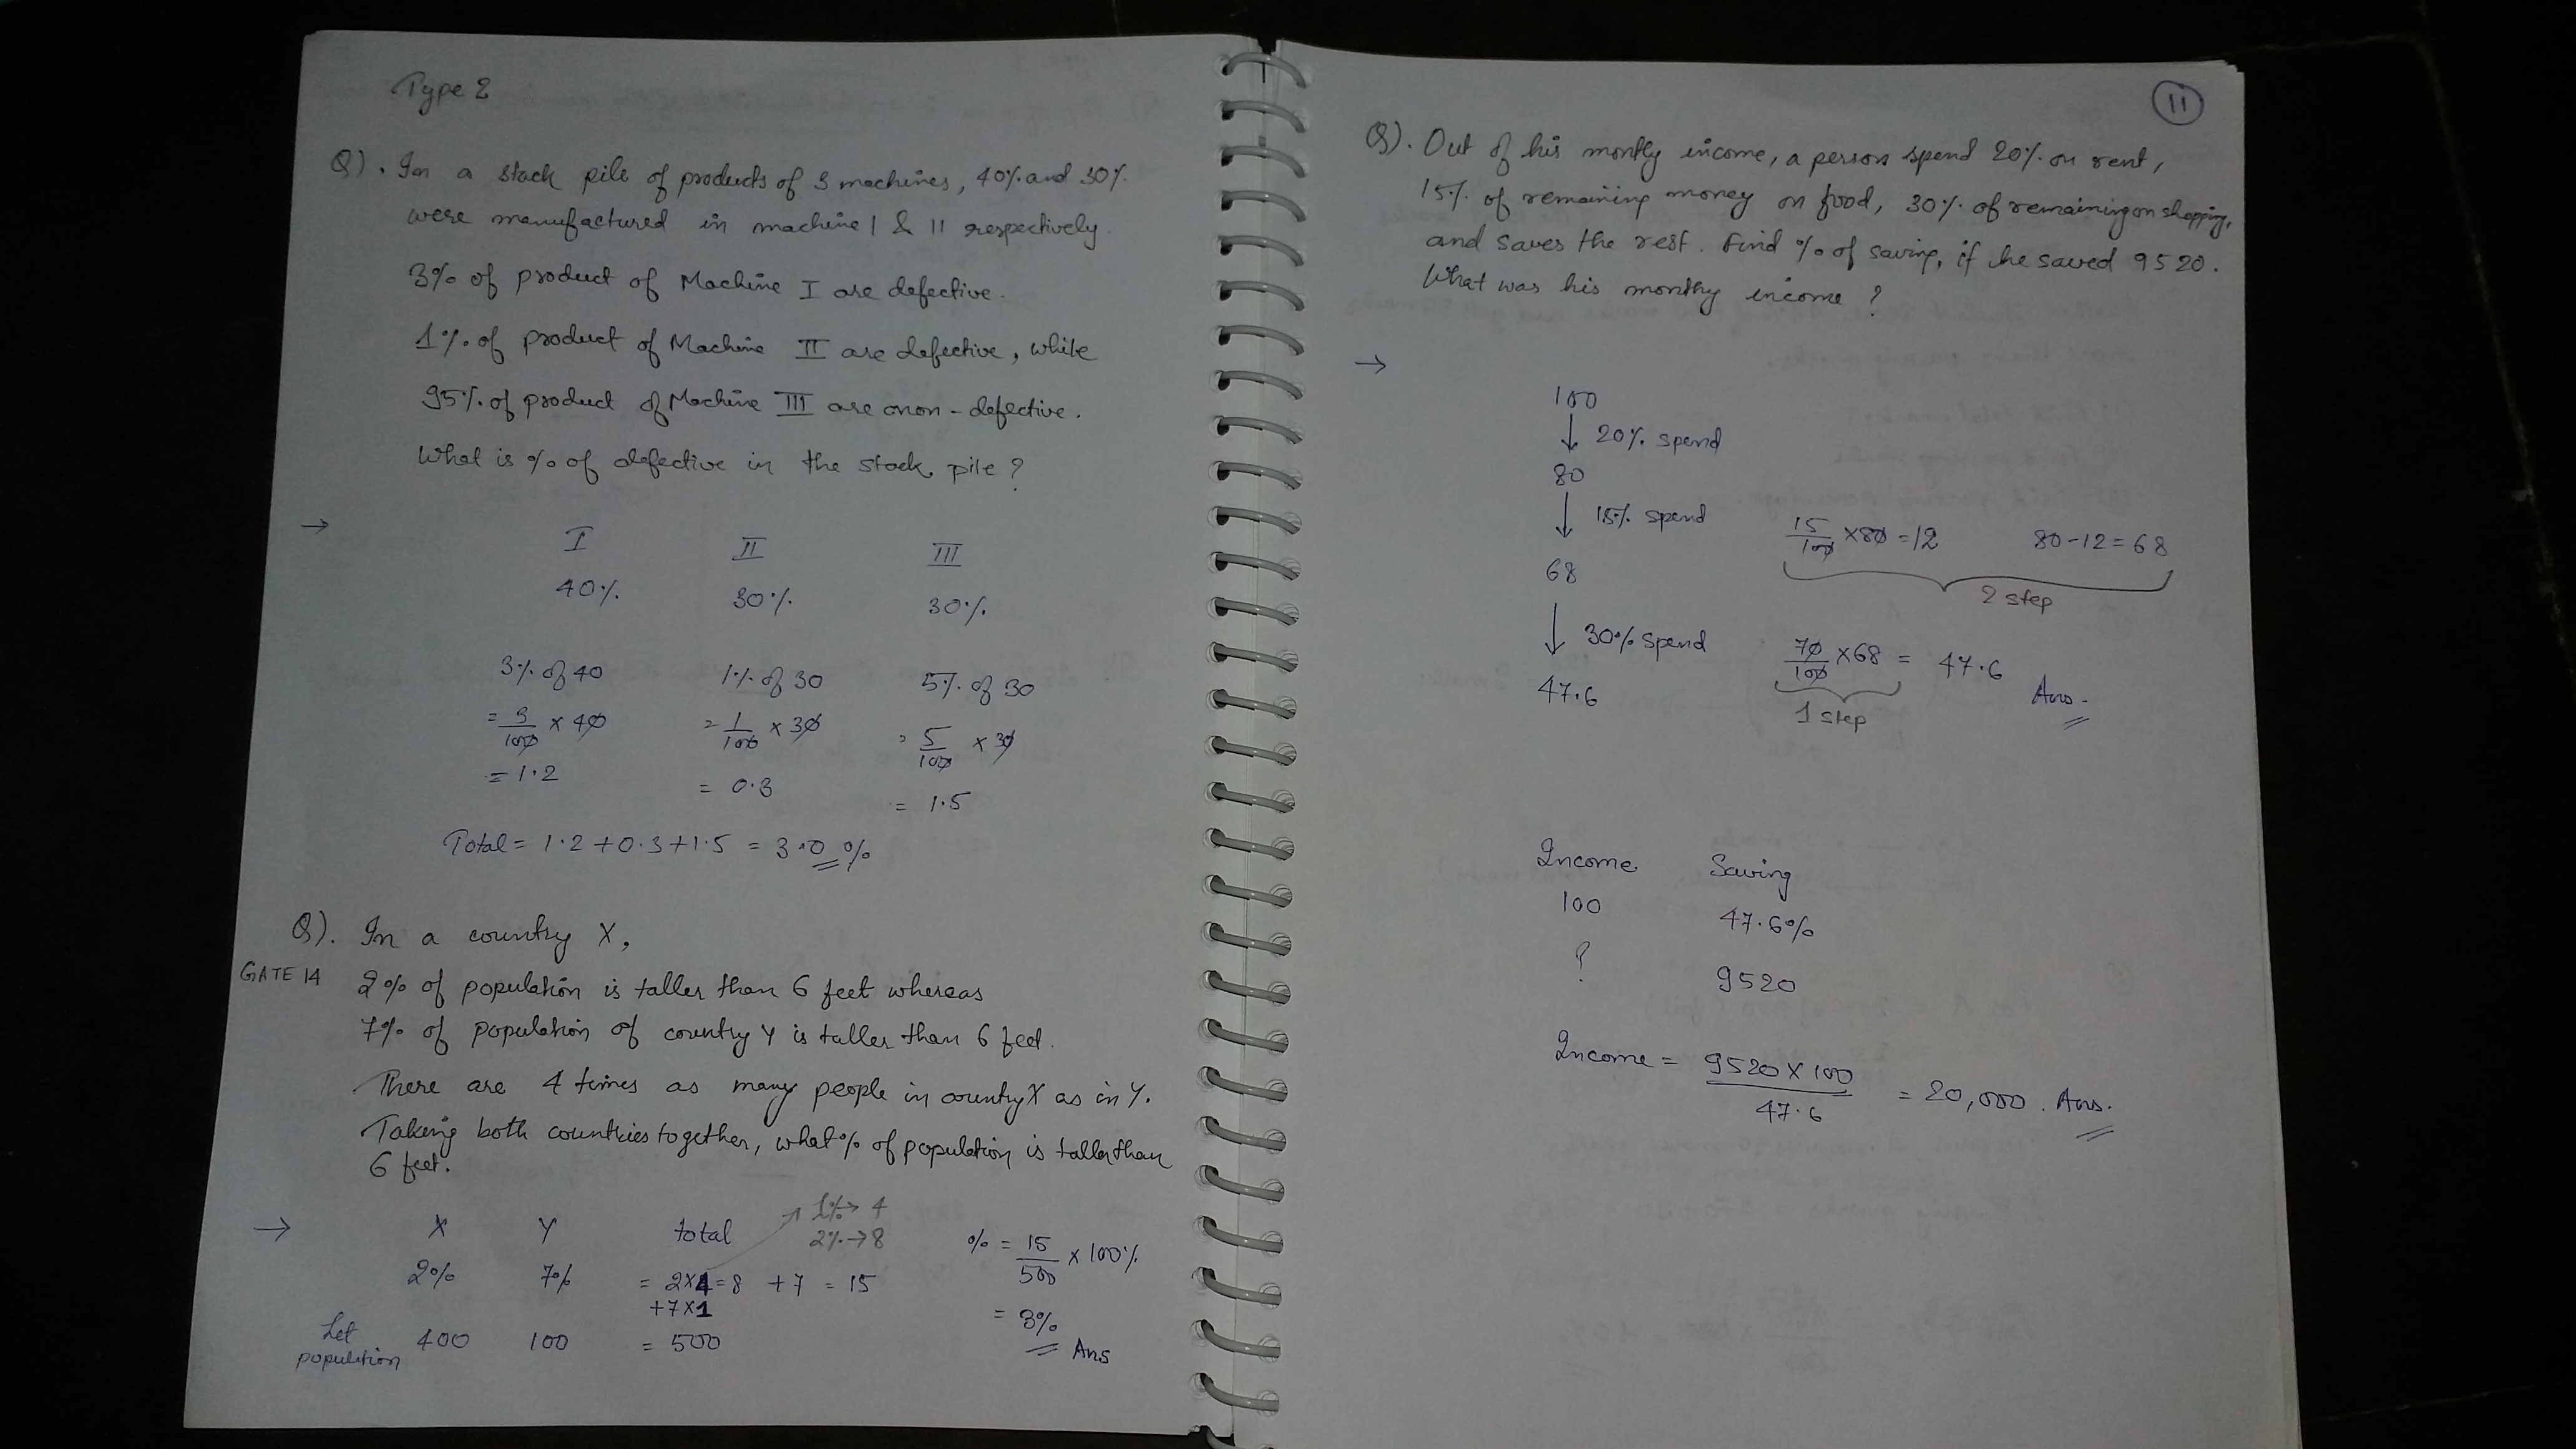 Type 2
Q). In a stack pile of products of 3 machines, 40% and 30%
were manufactured in machine I & II respectively.
3% of product of Machine I are defective.
1% of product of Machine II are defective, while
95% of product of Machine III are non-defective.
What is % of defective in the stock pile ?
→
I II III
40% 30% 30%
3% of 40 1% of 30 5% of 30
= 3/100 × 40 = 1/100 × 30 = 5/100 × 30
= 1.2 = 0.3 = 1.5
Total = 1.2 + 0.3 + 1.5 = 3.0 %
Q). In a country X,
GATE 14
2% of population is taller than 6 feet whereas
7% of population of country Y is taller than 6 feet.
There are 4 times as many people in country X as in Y.
Taking both countries together, what % of population is taller than
6 feet.
→ X Y total
1% → 4
2% → 8
2% 7% = 2×4=8 +7 = 15
+7×1
Let population 400 100 = 500
% = 15/500 × 100%
= 3%
Ans
11
Q). Out of his montly income, a person spend 20% on rent,
15% of remaining money on food, 30% of remaining on shopping,
and saves the rest. Find % of saving, if he saved 9520.
What was his monthy income ?
→
100
↓ 20% spend
80
↓ 15% spend 15/100 ×80 =12 80-12=68
2 step
68
↓ 30% spend 70/100 ×68 = 47.6 Ans.
1 step
47.6
Income Saving
100 47.6%
? 9520
Income = 9520 × 100 / 47.6 = 20,000. Ans.